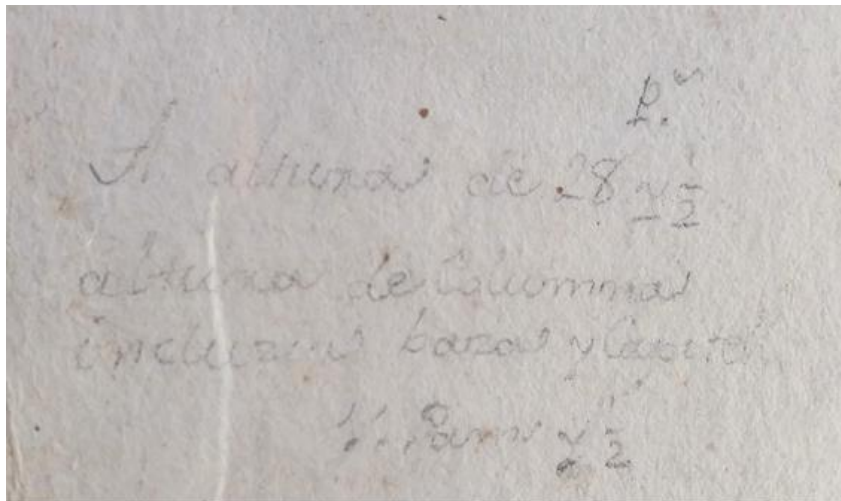 P.
altura de 28 y 1/2
altura de Columna
incluzas baza y Capitel
y 1/2